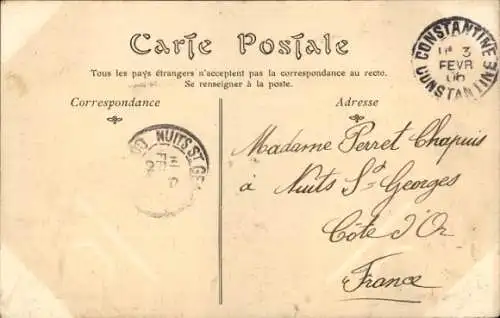 Carte Postale
Tous les pays étrangers n'acceptent pas la correspondance au recto.
Se renseigner à la poste.
Correspondance
Adresse
CONSTANTINE
3
FEVR
06
CONSTANTINE
NUITS ST GE
Madame Perret Chapuis
à Nuits St Georges
Côte d'Or
France